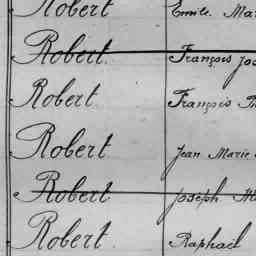 Robert Emile. Ma
Robert François Jo
Robert François Th
Robert Jean Marie
Robert Joseph
Robert Raphaël